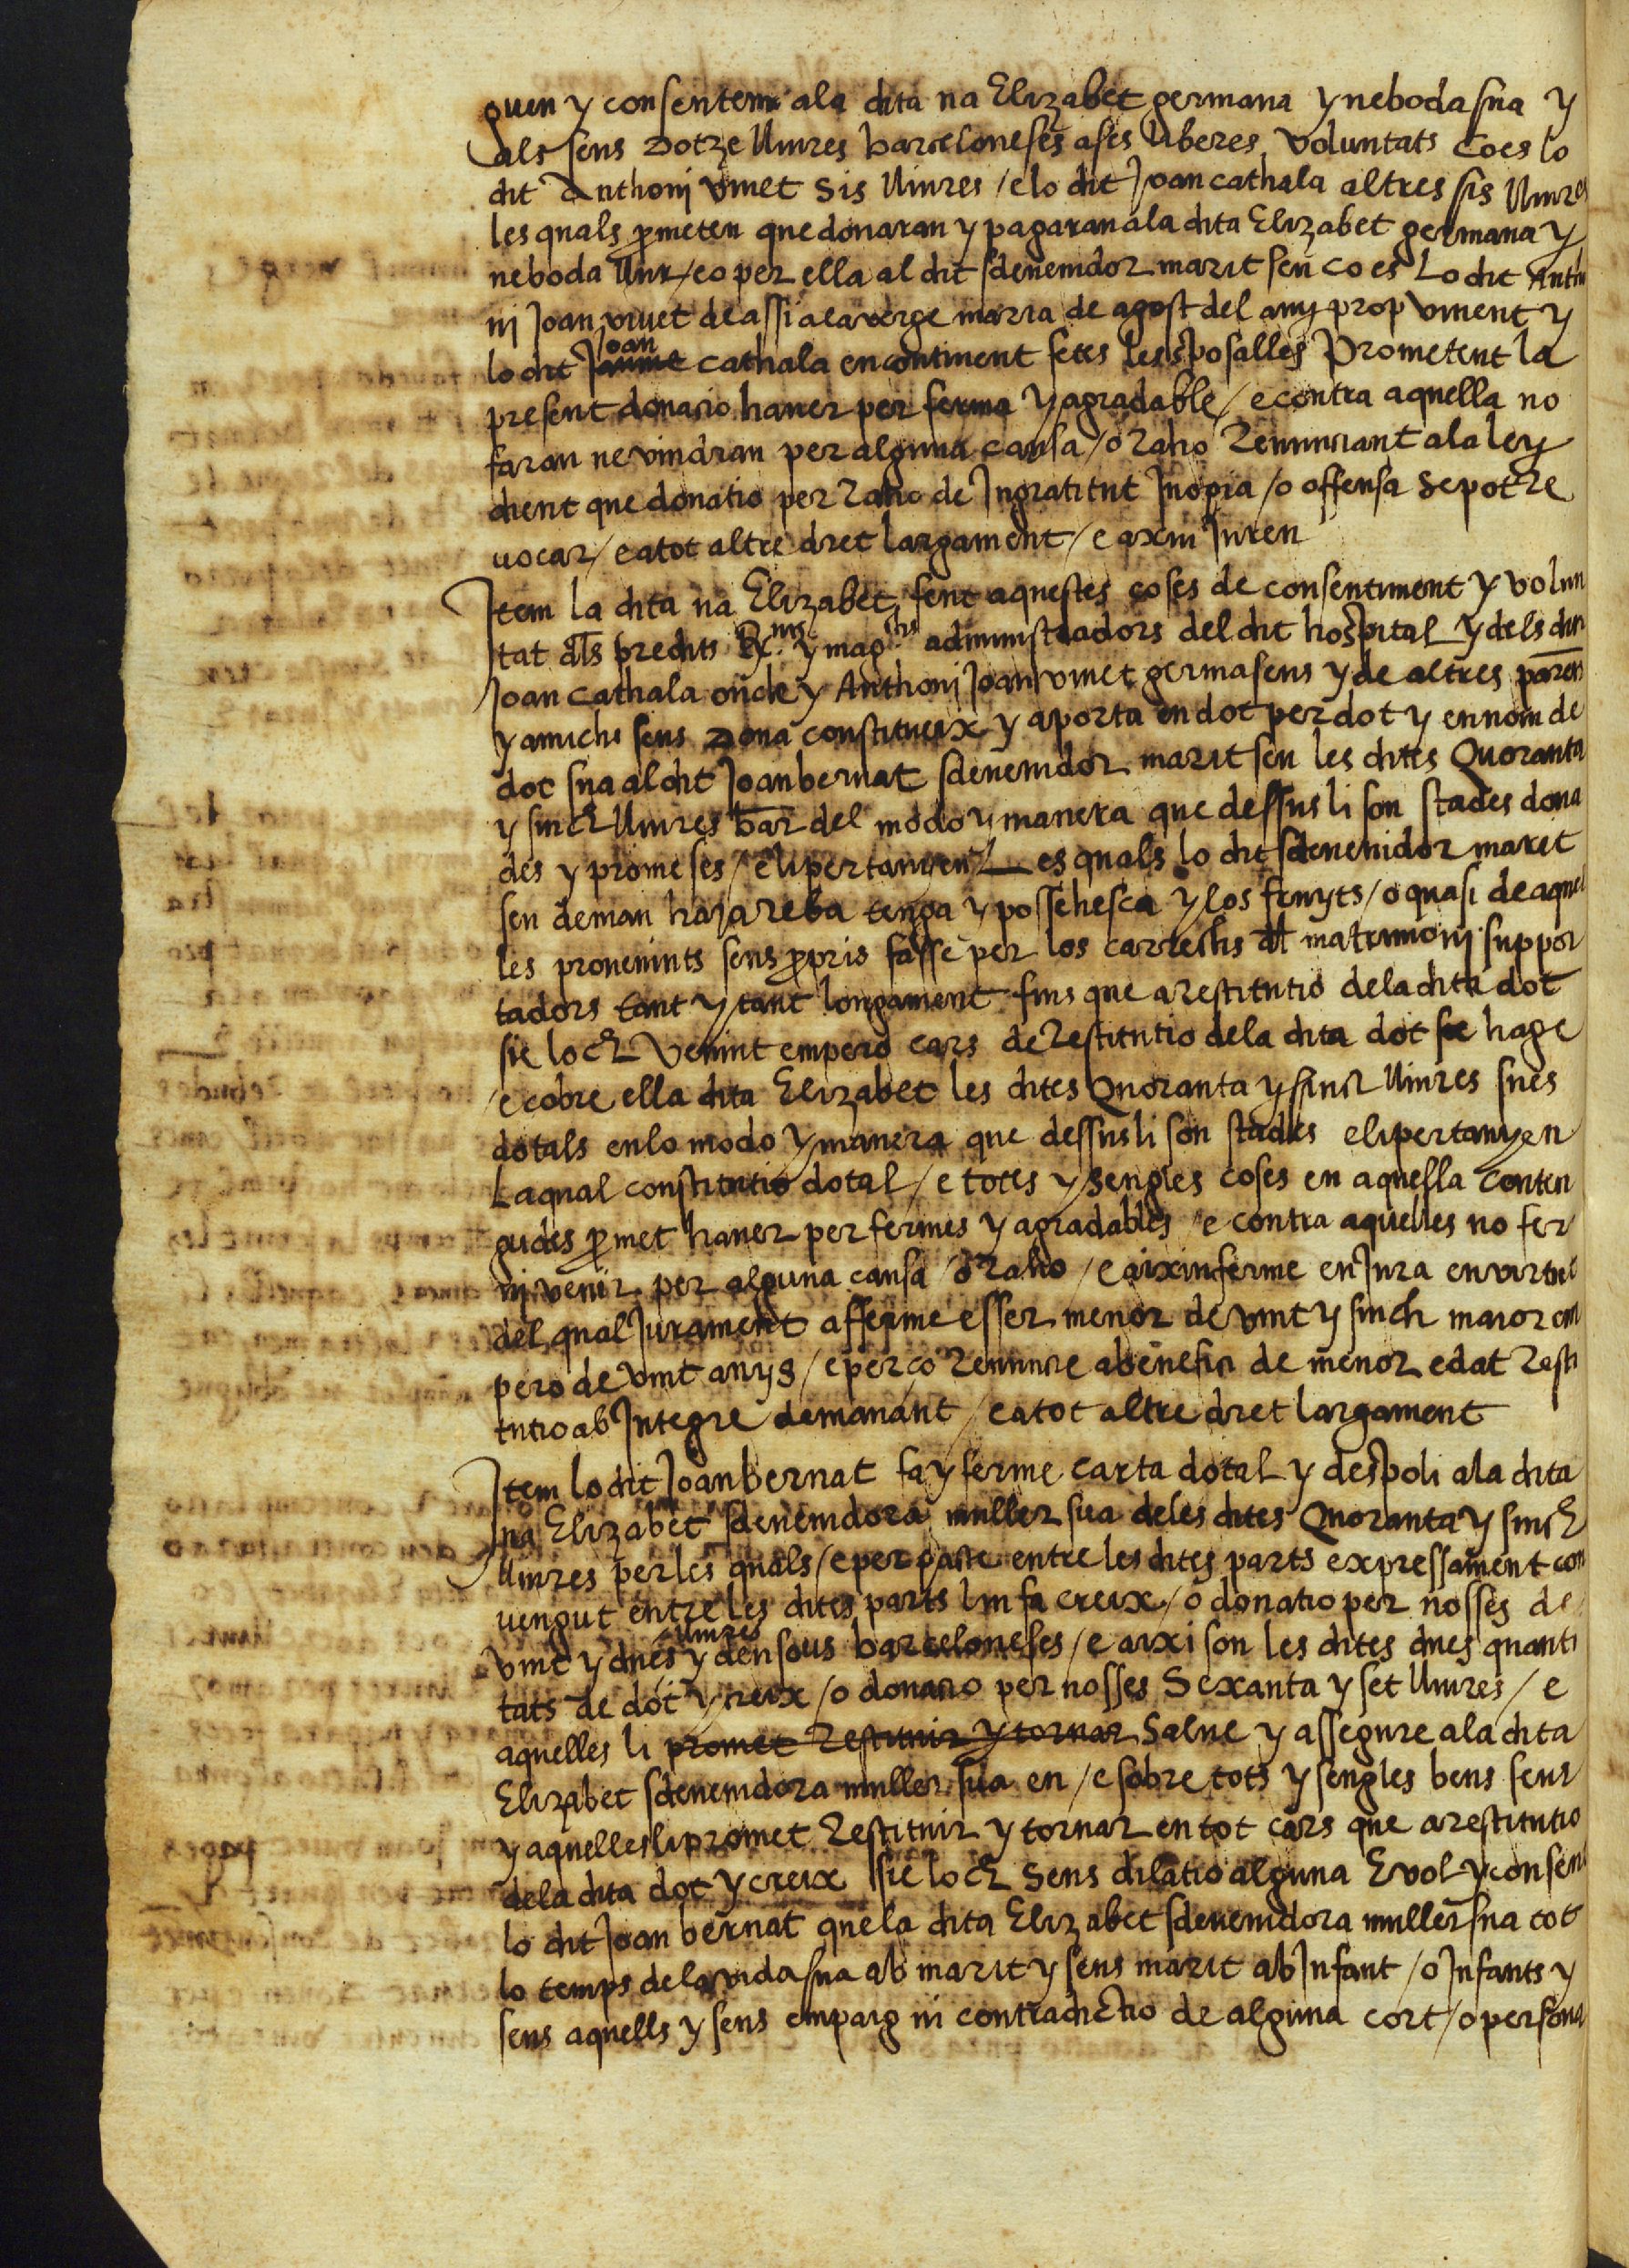 guen y consentem ala dita na Elizabet germana y neboda sua y
als seus dotze lliures barceloneses a ses liberes voluntats ço es lo
dit Anthoni vivet sis lliures / e lo dit Joan cathala altres sis lliures
les quals prometen que donaran y pagaran ala dita Elizabet germana y
neboda llur / eo per ella al dit sdevenidor marit seu ço es Lo dit Antho
ni Joan vivet de assi a la verge maria de agost del any prop vinent y
lo dit Joan cathala en continent fetes les sposalles Prometent la
present donatio haver per ferma y agradable / e contra aquella no
faran ne vindran per alguna causa / o Raho Renunciant ala ley
dient que donatio per Raho de Ingratitut Inopia / o offensa se pot re
vocar / e a tot altre dret largament / e axiu Juren
Item la dita na Elizabet fent aquestes coses de consentiment y volun
tat dels predits R.nts y mag.chs administradors del dit hospital y dels dits
Joan cathala oncle y Anthoni Joan vivet germa seus y de altres parens
y amichs seus dona constitueix y aporta en dot per dot y en nom de
dot sua al dit Joan bernat sdevenidor marit seu les dites Quoranta
y sinch lliures bar del modo y manera que dessus li son stades dona
des y promeses / e li pertanyen Les quals lo dit sdevenidor marit
seu deman haja reba tenga y possehesca y los fruyts / o quasi de aque
les provenints seus propris fasse per los carrechs del matrimoni suppor
tadors tant y tant longament fins que a restitutio dela dita dot
sie loch Venint empero cars de Restitutio dela dita dot se hage
e cobre ella dita Elizabet les dites Quoranta y sinch lliures sues
dotals en lo modo y manera que dessus li son stades e li pertanyen
La qual constitutio dotal / e totes y sengles coses en aquella conten
gudes promet haver per fermes y agradables / e contra aquelles no fer
ni venir per alguna causa / o Raho / e aixiu ferme en Jura en virtut
del qual Jurament afferme esser menor de vint y sinch maior em
pero de vint anys / e per ço Renuncie a benefici de menor edat Resti
tutio ab Integre demanant / e a tot altre dret largament
Item lo dit Joan bernat fa y ferme carta dotal y despoli ala dita
na Elizabet sdevenidora muller sua de les dites Quoranta y sinch
lliures per les quals / e per pacte entre les dites parts expressament con
vengut entre les dites parts liu fa creix / o donatio per nosses de
vint y dues lliures y deu sous barceloneses / e aixi son les dites dues quanti
tats de dot y creix / o donatio per nosses Sexanta y set lliures / e
aquelles li promet Restituir y tornar Salve y assegure ala dita
Elizabet sdevenidora muller sua en / e sobre tots y sengles bens seus
y aquelles li promet Restituir y tornar en tot cars que a restitutio
dela dita dot y creix sie loch Sens dilatio alguna E vol y consent
lo dit Joan bernat que la dita Elizabet sdevenidora muller sua tot
lo temps de la vida sua ab marit y sens marit ab Infant / o Infants y
sens aquells y sens empaig ni contradictio de alguna cort / o persona